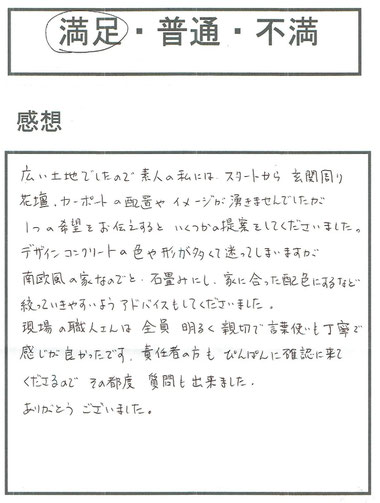 満足・普通・不満
感想
広い土地でしたので素人の私には スタートから 玄関周り
花壇、カーポートの配置や イメージが 湧きませんでしたが
1つの希望を お伝えすると いくつかの提案をしてくださいました。
デザインコンクリートの 色や形が多くて 迷ってしまいますが
南欧風の家なのでと、石畳みにし、家に合った配色にするなど
絞っていきやすいよう アドバイスもしてくださいました。
現場の職人さんは 全員 明るく 親切で 言葉使いも丁寧で
感じが良かったです。責任者の方も ひんぱんに確認に来て
くださるので その都度 質問も出来ました。
ありがとう ございました。